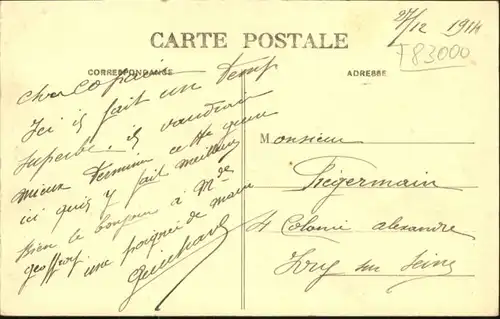 27/12 1914
F83000
CARTE POSTALE
CORRESPONDANCE
ADRESSE
Cher Copain
Ici il fait un Temp
superbe. il vaudrait
mieux Terminer cette guerre
ici quis y fait meilleur
Bien le bonjour à Mde
Geoffroy une poignée de main
Monsieur
Pregermain
St Colonie alexandre
Ivry sur Seine